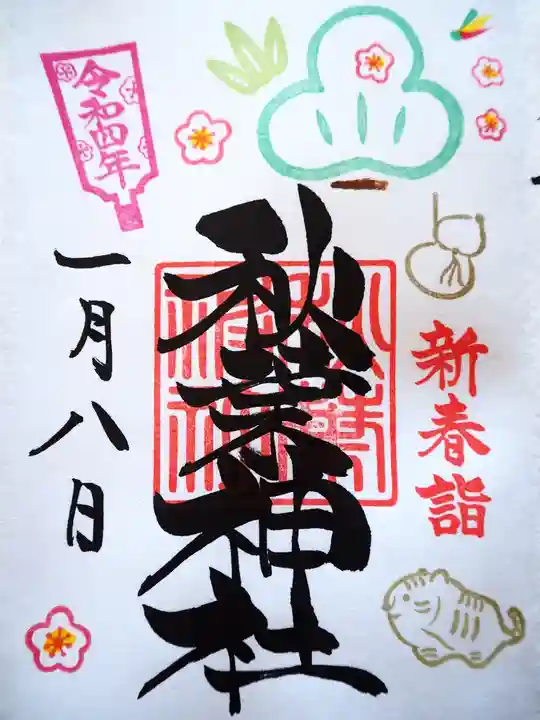 新春詣
秋葉神社
令和四年
一月八日